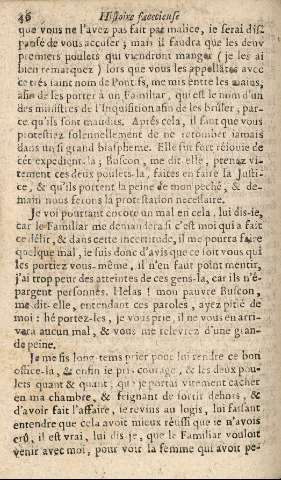 46 Histoire facetieuse
que vous ne l'avez pas fait par malice, ie serai dis-
pansé de vous accuser; mais il faudra que les deux
premiers poulets qui viendront manger (je les ai
bien remarquez) lors que vous les appellâtes avec
ce tres saint nom de Pontifs, me mis entre les mains,
afin de les porter à un Familiar, qui est le nom d'un
des ministres de l'Inquisition afin de les brûler; par-
ce qu'ils sont maudits. Aprés cela, il faut que vous
protestiez solennellement de ne retomber iamais
dans un si grand blaspheme. Elle fut fort réiouïe de
cét expedient-la; Buscon, me dit elle, prenez vî-
tement ces deux poulets-la, faites en faire la Justi-
ce, & qu'ils portent la peine de mon peché, & de-
main nous ferons la protestation necessaire.
Je voi pourtant encore un mal en cela, lui dis-ie,
car le Familiar me demandera si c'est moi qui a fait
ce délit, & dans cette incertitude, il me pourra faire
quelque mal, ie suis donc d'avis que ce soit vous qui
les portiez vous-même, il n'en faut point mentir,
j'ai trop peur des atteintes de ces gens-la, car ils n'é-
pargent personnes. Helas! mon pauvre Buscon,
me dit-elle, entendant ces paroles, ayez pitié de
moi: hé portez-les, je vous prie, il ne vous en arri-
vera aucun mal, & vous me releverez d'une gran-
de peine.
Je me fis long-tems prier pour lui rendre ce bon
office-la, & enfin ie pris courage, & les deux pou-
lets quant & quant, que je portai vîtement cacher
en ma chambre, & feignant de sortir dehors, &
d'avoir fait l'affaire, ie revins au logis, lui faisant
entendre que cela avoit mieux réussi que ie n'avois
crû, il est vrai, lui dis je, que le Familiar vouloit
venir avec moi, pour voir la femme qui avoit pe-